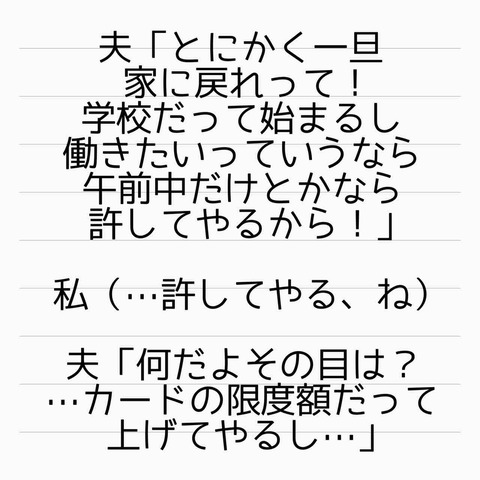 夫「とにかく一旦
家に戻れって！
学校だって始まるし
働きたいっていうなら
午前中だけとかなら
許してやるから！」
私（…許してやる、ね）
夫「何だよその目は？
…カードの限度額だって
上げてやるし…」